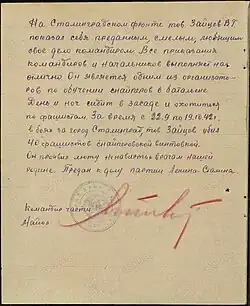 На Сталинградском фронте тов. Зайцев В.Г.
показал себя преданным, смелым, любящим
свое дело командиром. Все приказания
командиров и начальников выполнял на
отлично. Он является одним из организато-
ров по обучении снайперов в батальоне
День и ночь сидит в засаде и охотится
по фашистам. За время с 22.9 по 19.10.42г.
в боях за город Сталинград, тов Зайцев убил
40 фашистов снайперовской винтовкой.
Он проявил лютую ненависть врагам нашей
родине. Предан к делу партии Ленина-Сталина.
Командир части
Майор